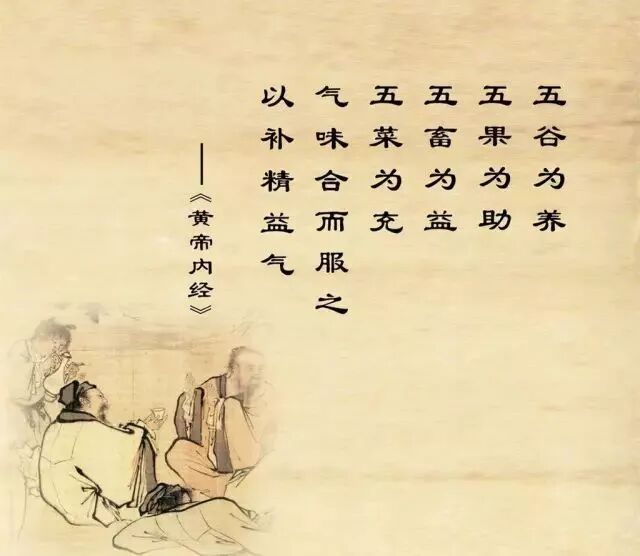 五谷为养
五果为助
五畜为益
五菜为充
气味合而服之
以补精益气
——《黄帝内经》